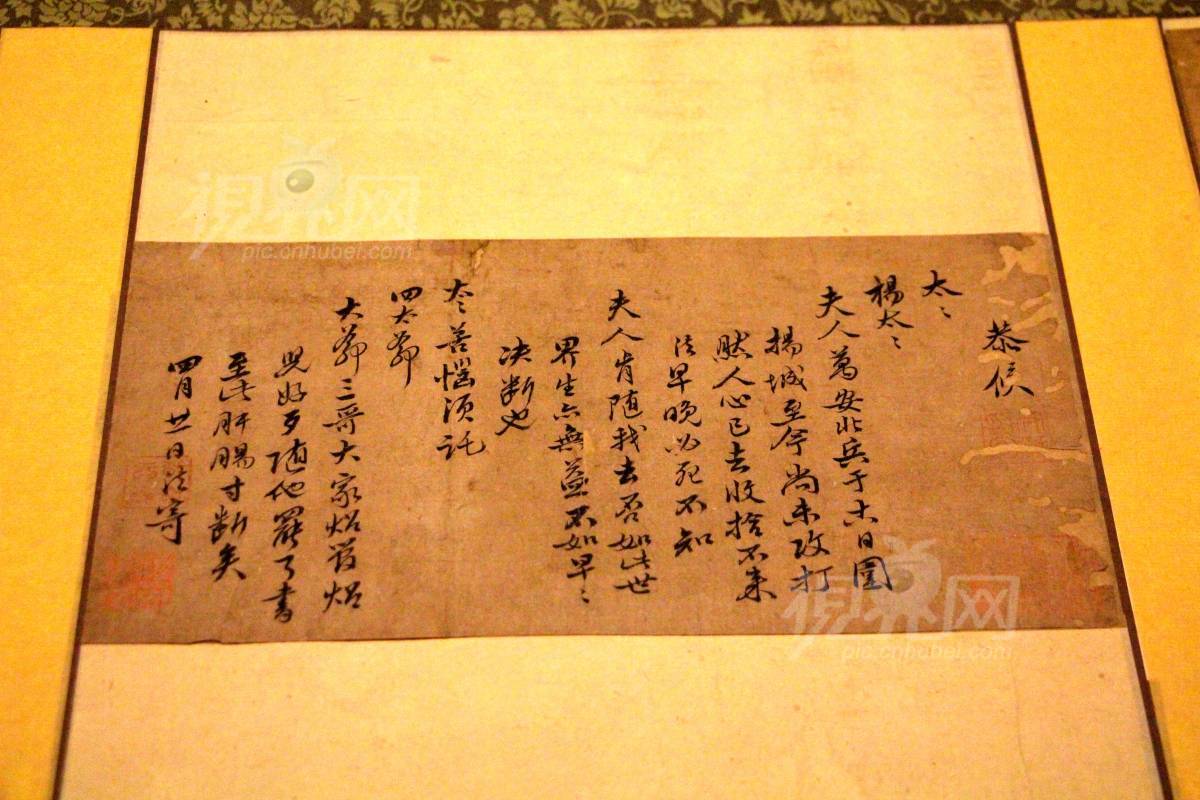 恭候
太〻
楊太〻
夫人萬安北兵于十八日圍
揚城至今尚未攻打
然人心已去收拾不來
法早晚必死不知
夫人肯随我去否如此世
界生亦無益不如早〻
决断也
太〻苦惱須託
四太爺
大爺三哥大家炤管炤
兒好歹随他罷了書
至此肝腸寸斷矣
四月廿一日法寄
視界网
pic.cnhubei.com
視界网
pic.cnhubei.com